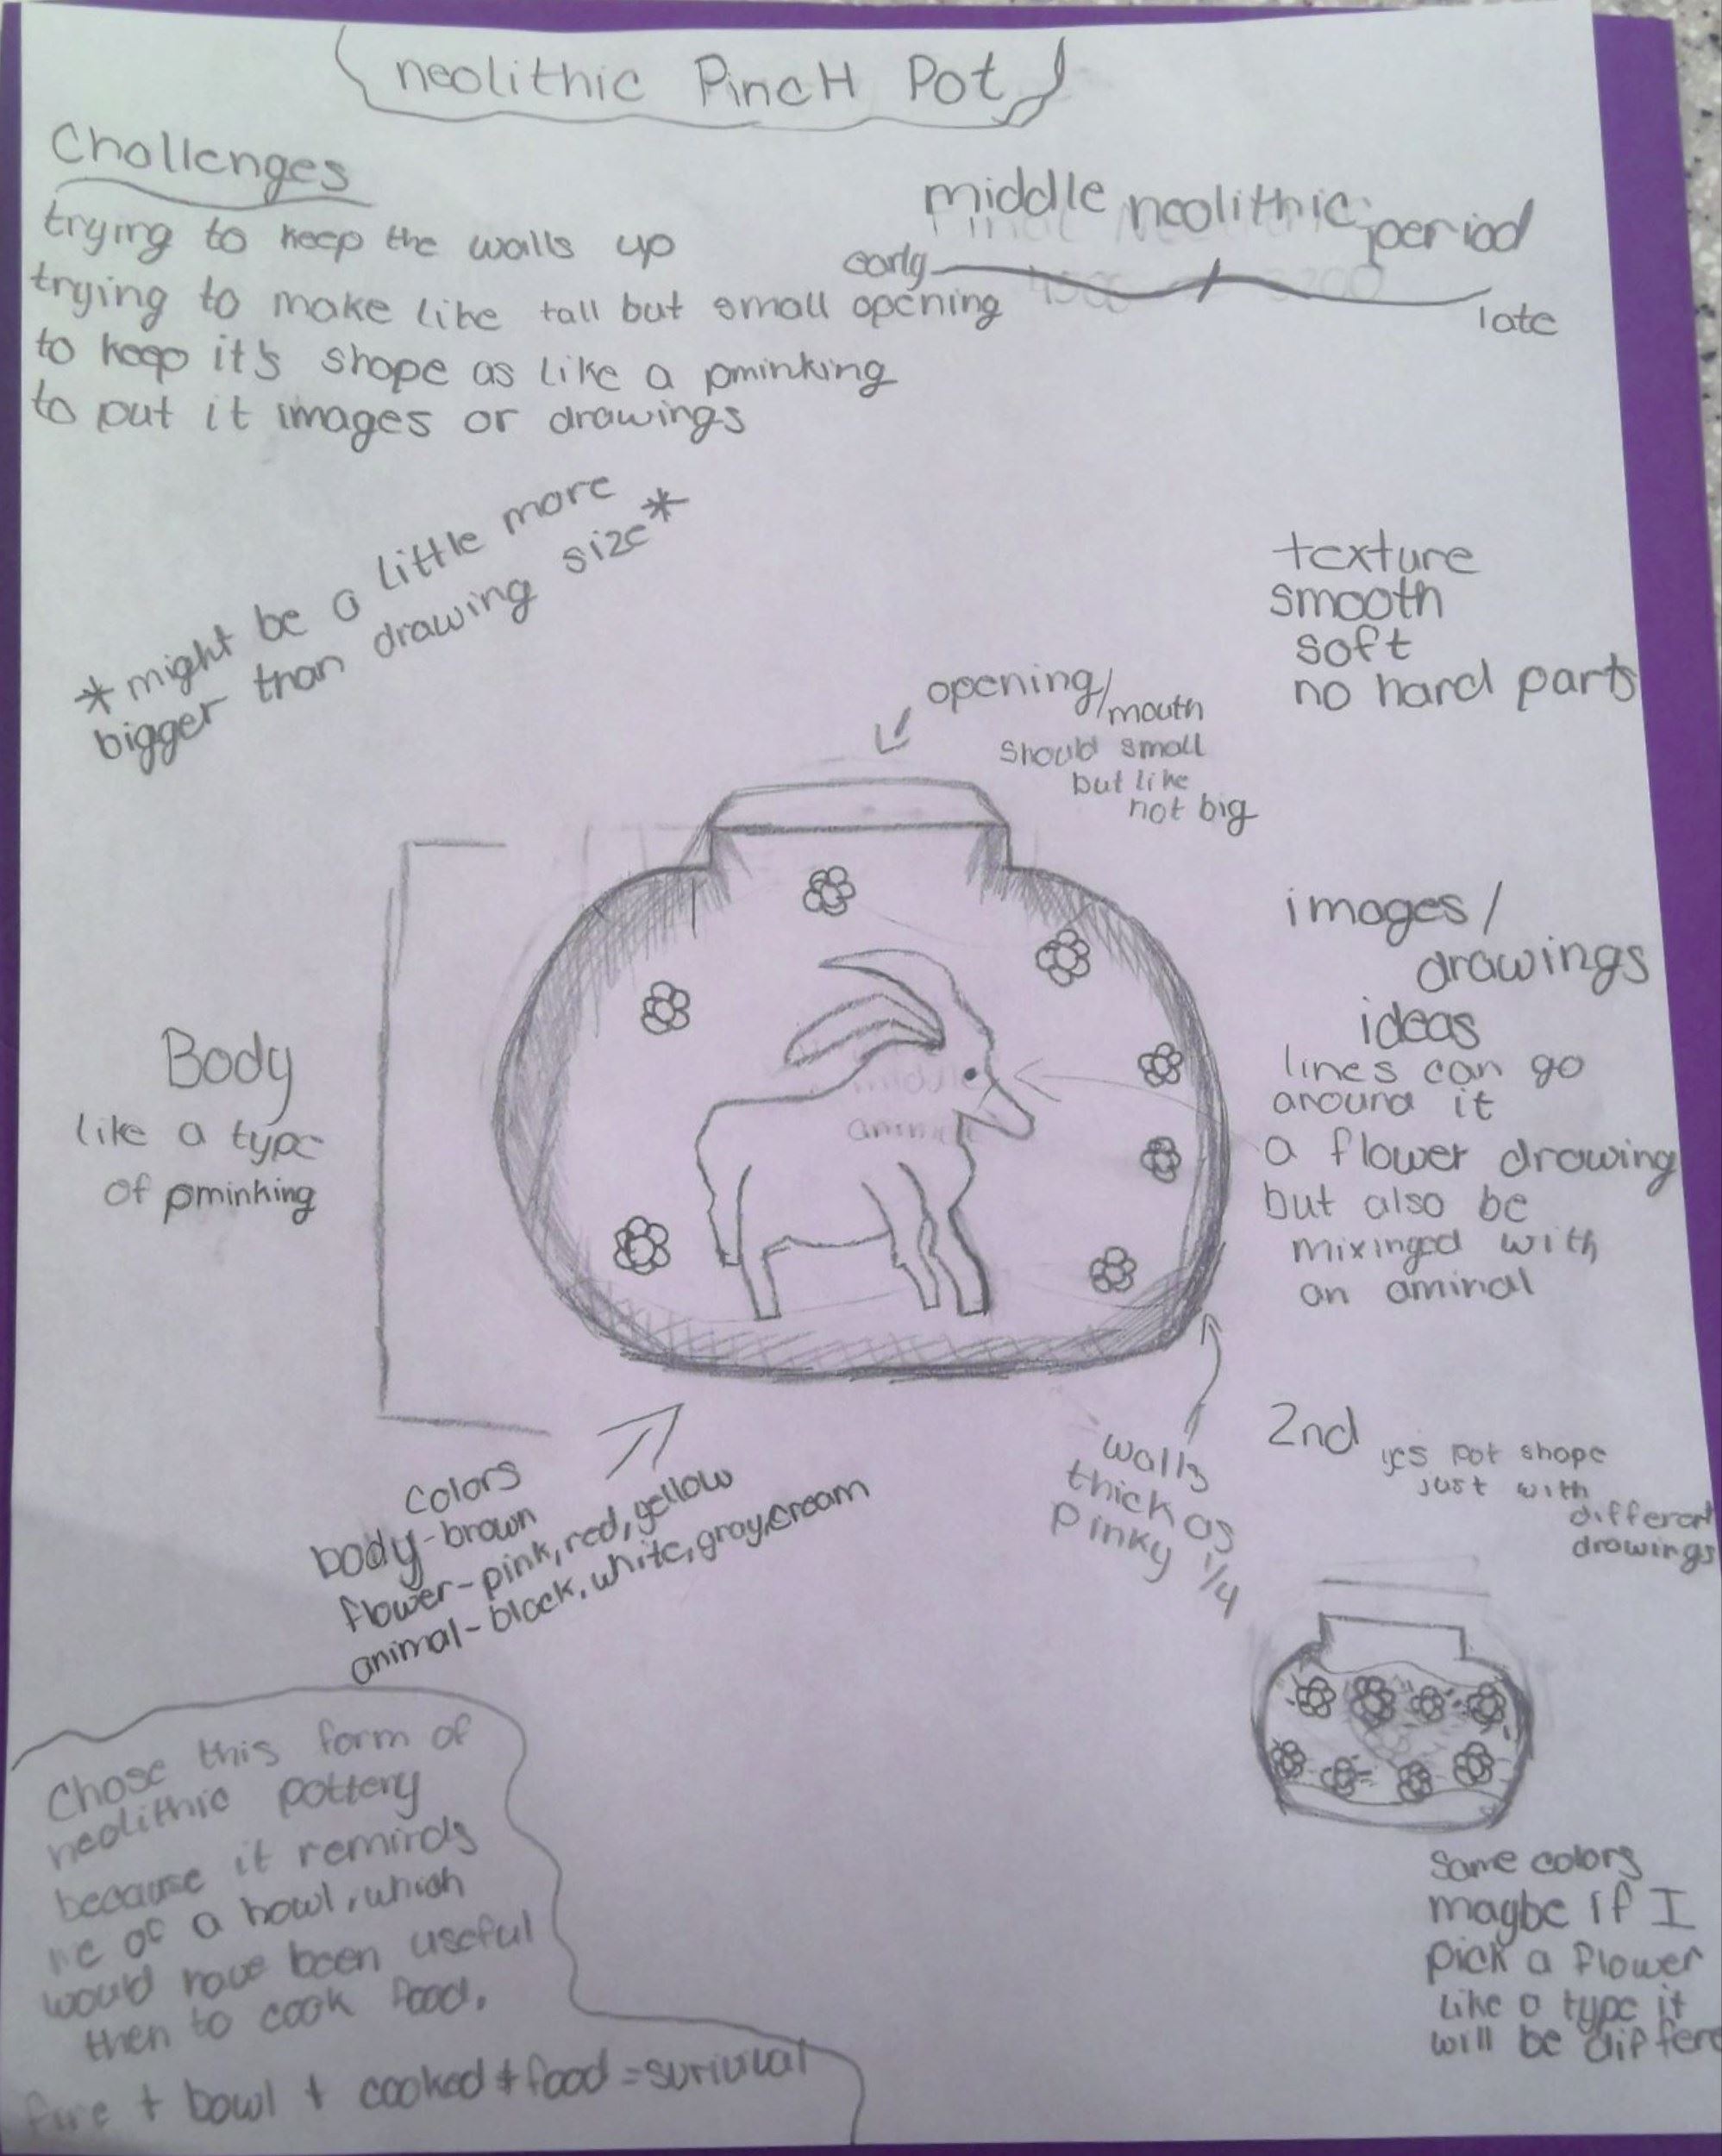 neolithic PincH Pot
Challenges
trying to keep the walls up
trying to make like tall but small opening
to keep it's shape as like a pminking
to put it images or drawings
middle neolithic period
early
late
*might be a little more
bigger than drawing size*
texture
smooth
soft
no hard parts
opening/
mouth
should small
but like
not big
images/
drawings
ideas
lines can go
around it
a flower drawing
but also be
mixinged with
an aminal
Body
like a type
of pminking
middle
Colors
body-brown
flower-pink, red, yellow
animal-black, white, gray, cream
walls
thick as
pinky 1/4
2nd
yes pot shape
just with
different
drawings
Same colors
maybe if I
pick a flower
like a type it
will be differe
Chose this form of
neolithic pottery
because it reminds
me of a bowl, which
would have been useful
then to cook food.
fire + bowl + cooked + food = surivival